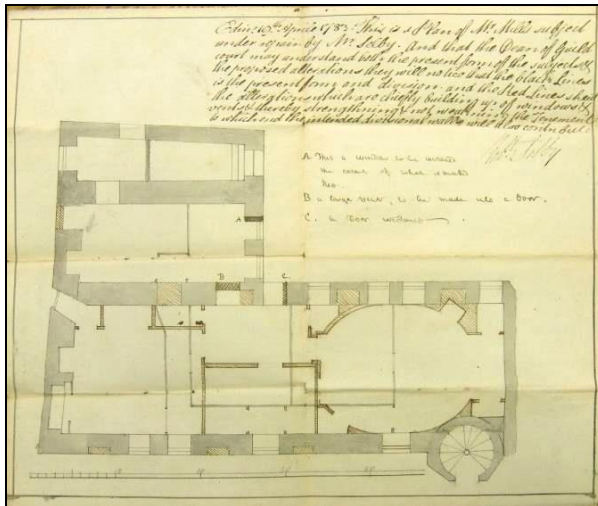 Edinr 19th Aprile 1783. This is a Plan of Mr. Mills subject
under repair by Mr. Selby. And that the Dean of Guild
court may understand both the present form of the subject &
the proposed alterations they will notice that the black Lines
is the present form and division and the Red Lines shew
the alterations which are chiefly building up of windows &
vents & thereby strengthening & not weakening the Tenement
to which end the intended divisional walls will also contribute
Selby
A This a window to be
the of what
B a large vent, to be made into a Door.
C. a Door
A
B
C.